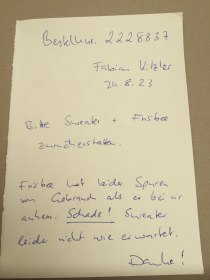 Bestellnr. 2228837
Fabian Kitzler
24.8.23
Bitte Sweater + Frisbee
zurückerstatten.
Frisbee hat leider Spuren
von Gebrauch als er bei mir
ankam. Schade! Sweater
leider nicht wie erwartet.
Danke!